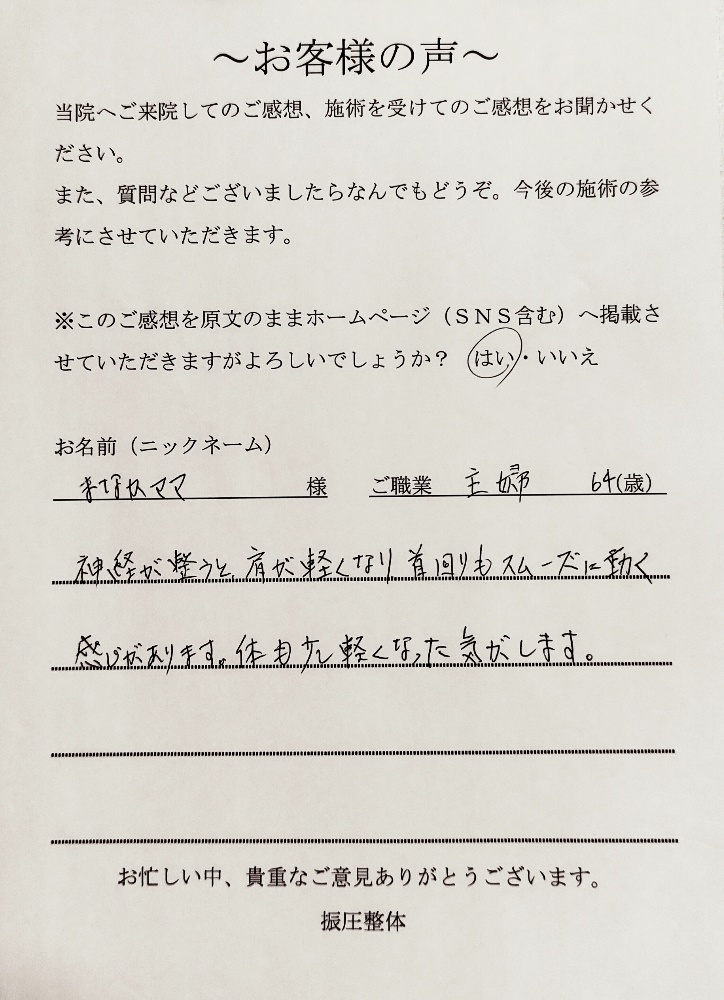 ～お客様の声～
当院へご来院してのご感想、施術を受けてのご感想をお聞かせく
ださい。
また、質問などございましたらなんでもどうぞ。今後の施術の参
考にさせていただきます。
※このご感想を原文のままホームページ（ＳＮＳ含む）へ掲載さ
せていただきますがよろしいでしょうか？　はい・いいえ
お名前（ニックネーム）
ママ 様　ご職業　主婦　64(歳)
神経が整うと、肩が軽くなり首回りもスムーズに動く
感じがあります。体も少し軽くなった気がします。
お忙しい中、貴重なご意見ありがとうございます。
振圧整体